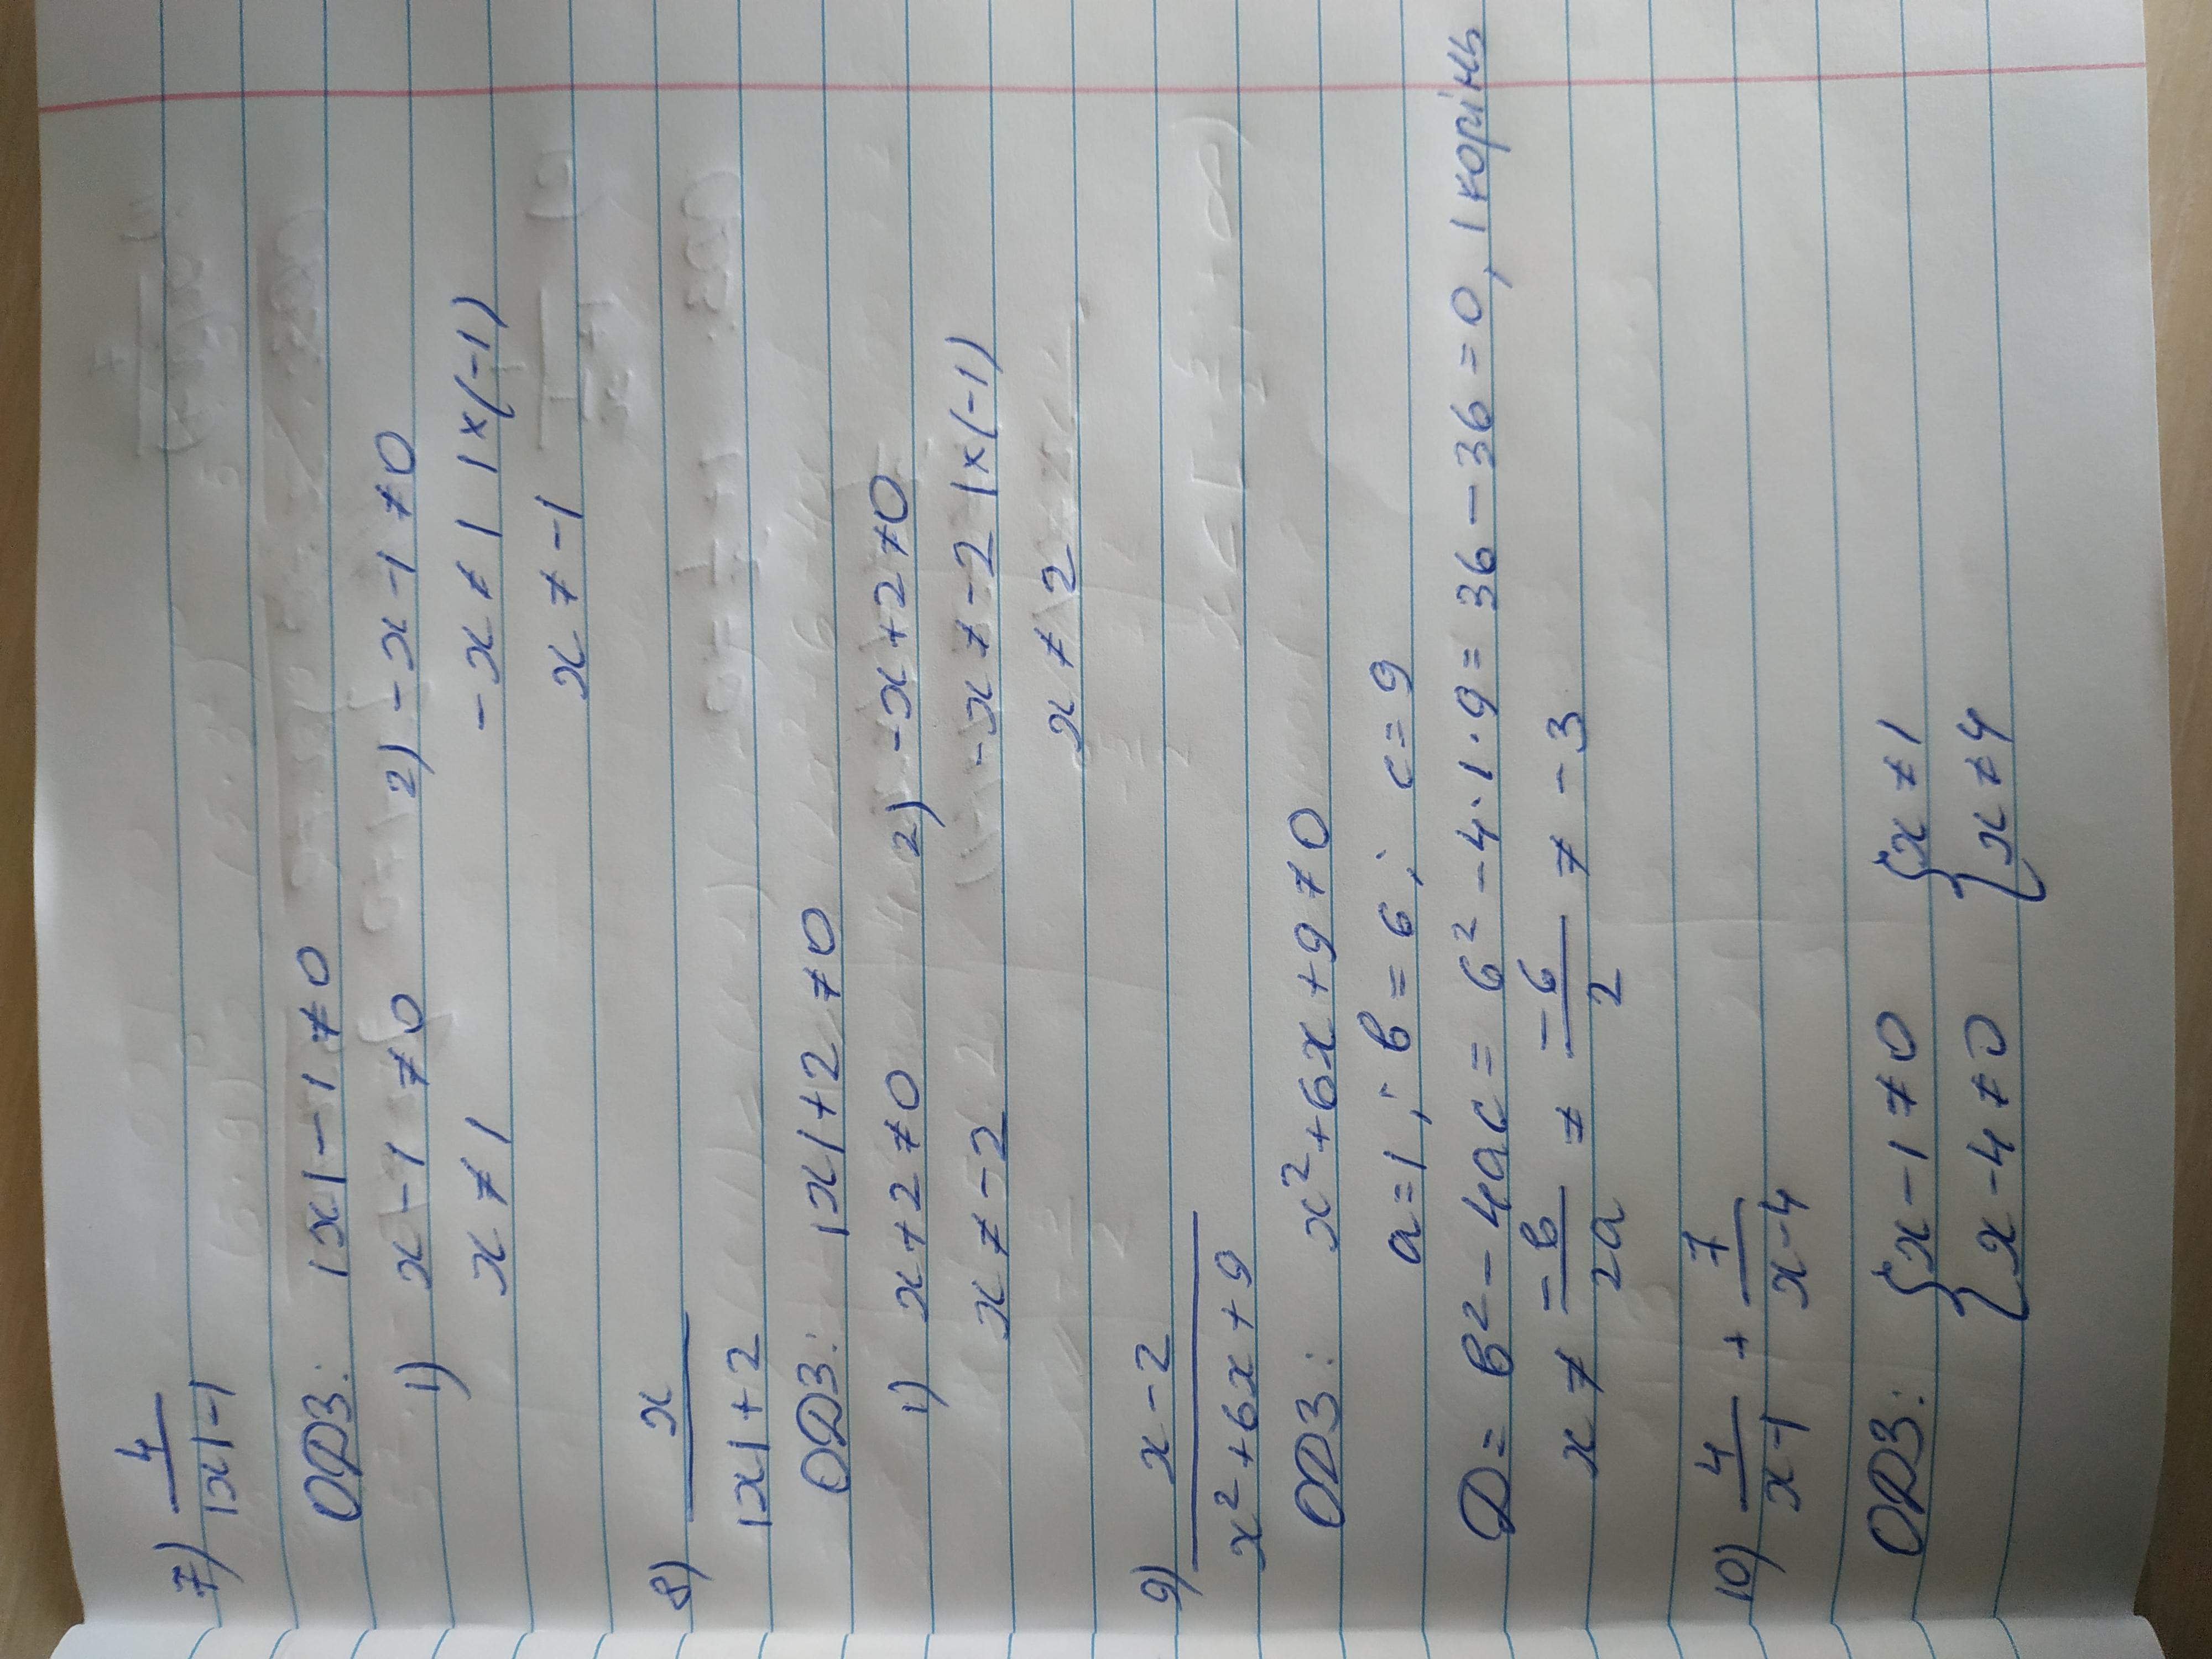 7) 4/(|x|-1)
ОДЗ: |x|-1≠0
1) x-1≠0 2) -x-1≠0
x≠1 -x≠1 |×(-1)
x≠-1
8) x/(|x|+2)
ОДЗ: |x|+2≠0
1) x+2≠0 2) -x+2≠0
x≠-2 -x≠-2 |×(-1)
x≠2
9) (x-2)/(x²+6x+9)
ОДЗ: x²+6x+9≠0
a=1; b=6; c=9
D=b²-4ac=6²-4·1·9=36-36=0, 1 корінь
x≠-b/2a≠-6/2≠-3
10) 4/(x-1)+7/(x-4)
ОДЗ: {x-1≠0 {x≠1
{x-4≠0 {x≠4